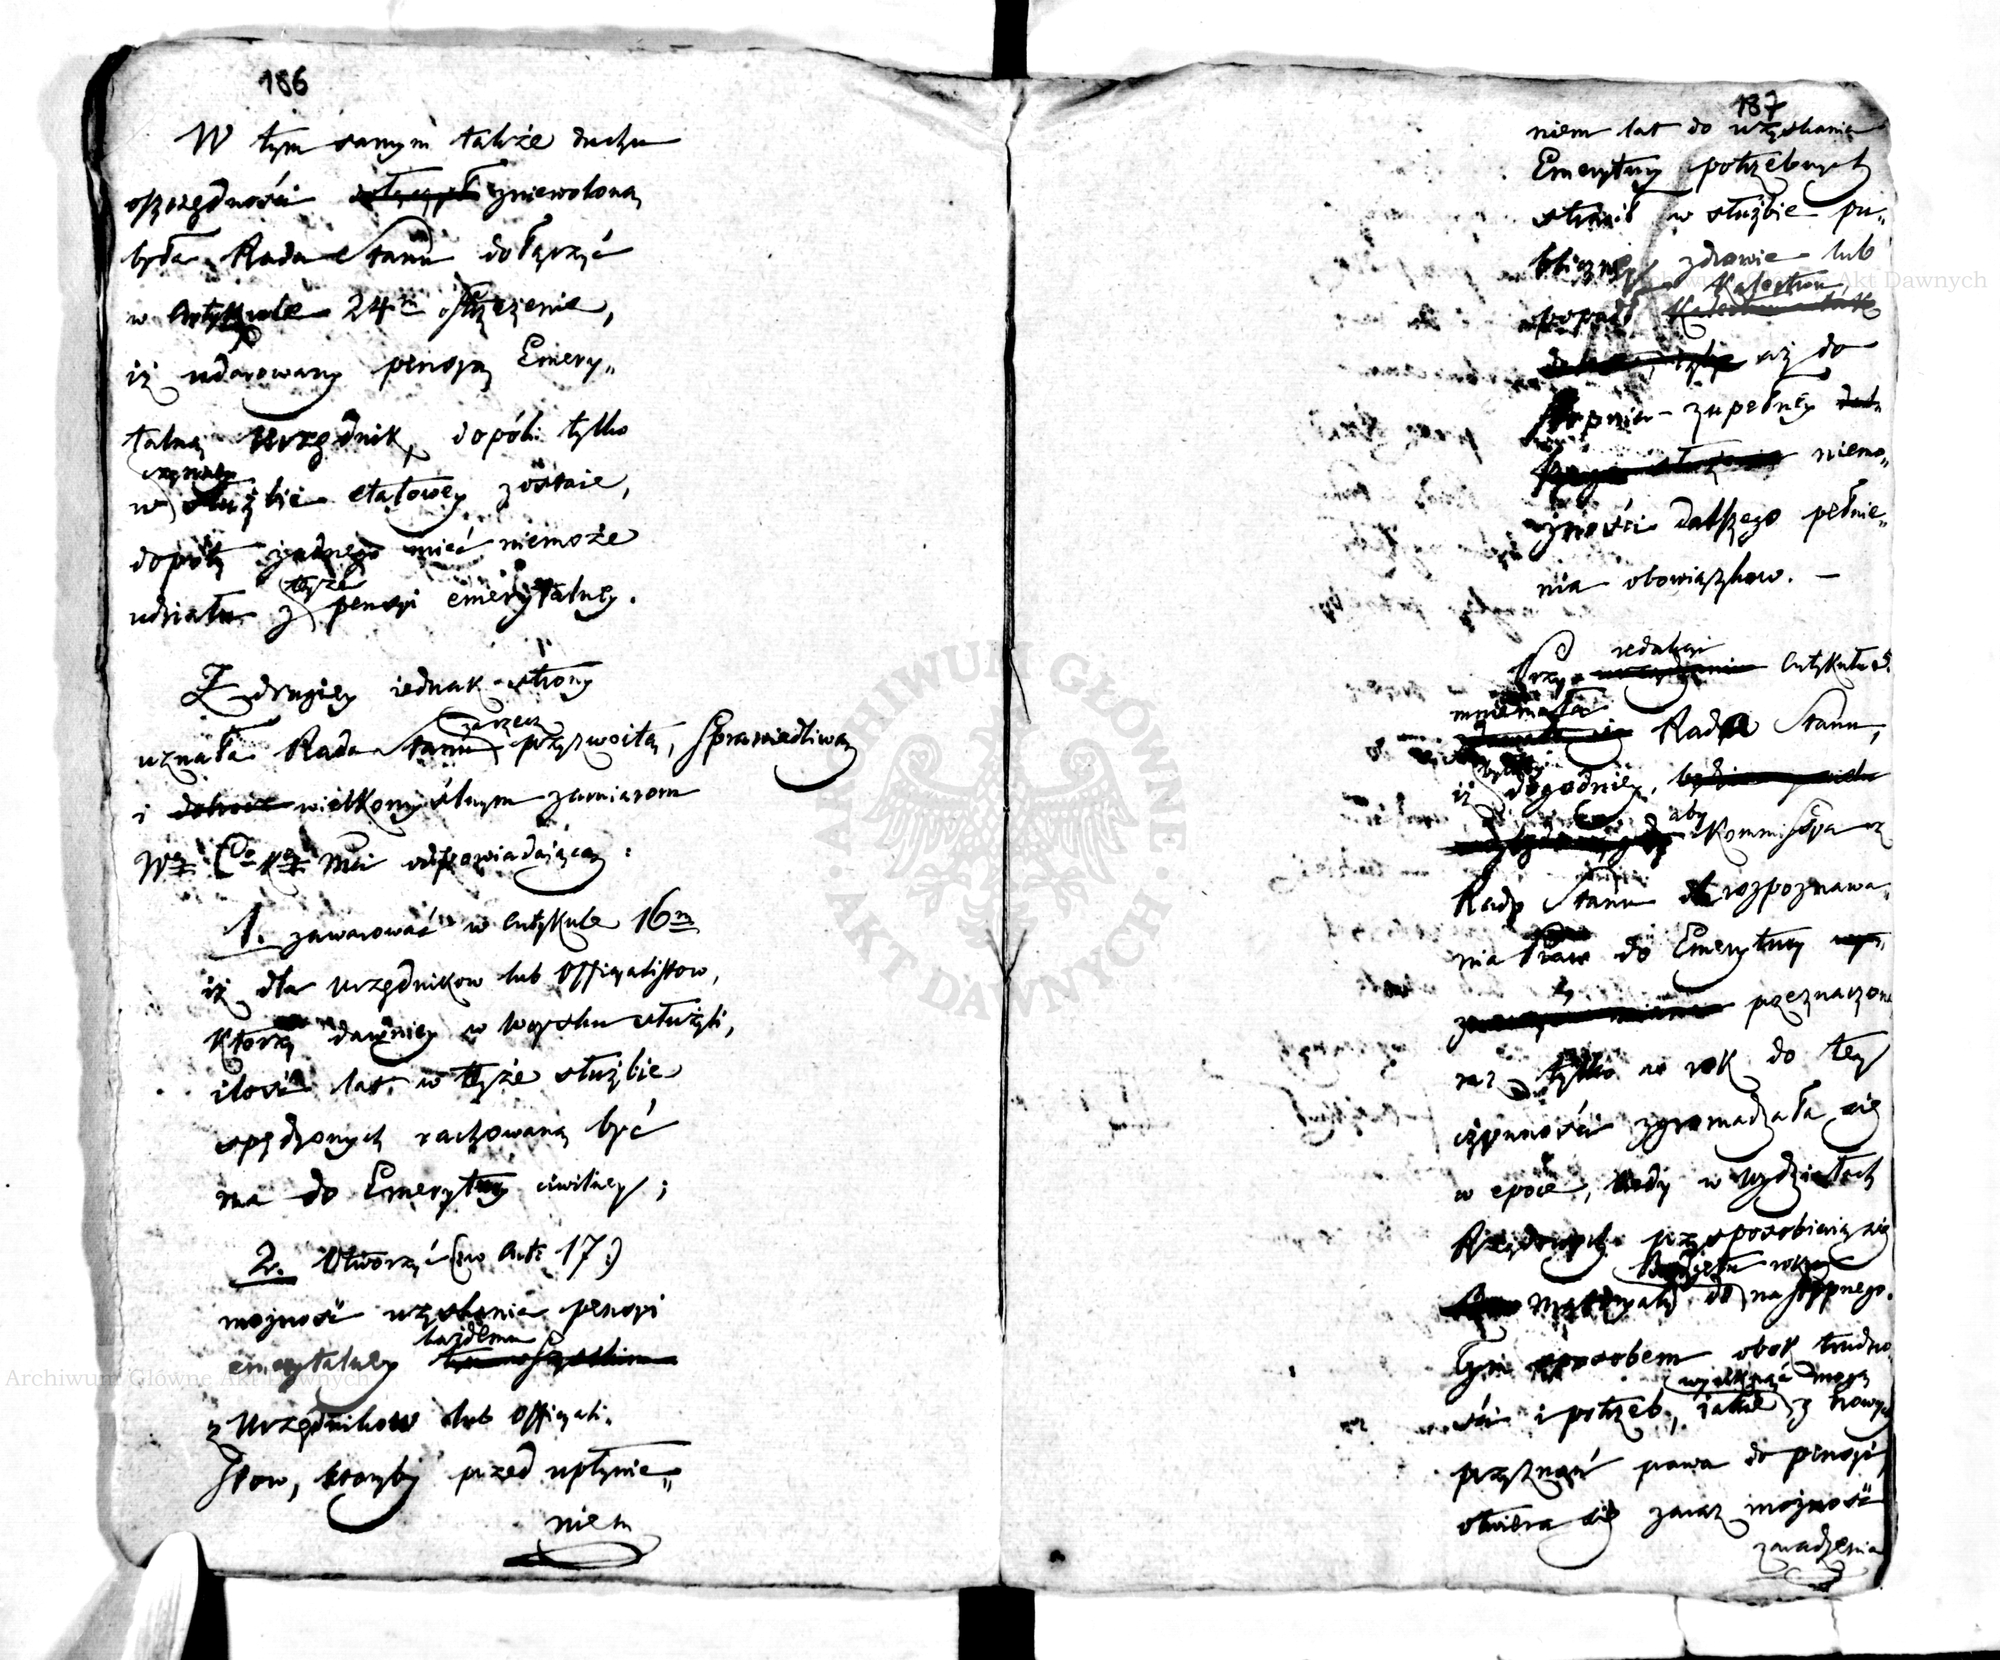 186
W tym samym także duchu
oszczędności zniewoloną
była Rada Stanu dołączyć
w Artykule 24m ostrzeżenie,
iż udarowany pensyą Emery„
talną Urzędnik, dopóki tylko
czynney
w służbie etatowey zostaie,
dopóty żadnego mieć niemoże
teyże
udziału z pensyi emerytalney.
Z drugiey iednak strony
za rzecz
uznała Rada Stanu przyzwoitą, sprawiedliwą
i wielkomyślnym zamiarom
Wey Co Key Mci odpowiadaiącą:
1. zawarować w Artykule 16m
iż dla Urzędnikow lub Officyalistow,
Ktorzy dawniey w woysku służyli,
ilość lat w teyże służbie
spędzonych rachowaną być
ma do Emerytury cywilney;
2. Utworzyć (w Art: 17.)
możność uzyskania pensyi
każdemu
emerytalney
z Urzędnikow lub Officyali„
stow, ktoryby przed upłynie„
niem
187
niem lat do uzyskania
Emerytury potrzebnych
stracił w służbie pu„
bliczney zdrowie lub
Kalectwo
popadł
aż do
stopnia zupełney
niemo„
żności dalszego pełnie„
nia obowiązkow. —
redakcyi
Przy Artykułu
mniemała
Rada Stanu,
byłoby
iż dogodniey,
aby Kommissya z
Rady Stanu do rozpoznawa„
nia Praw do Emerytury
przeznaczona
raz tylko w rok do tey
czynności zgromadzała się
w epoce, kiedy w Wydziałach
Rządowych przysposobiaią się
Budżetu roku
materyały do następnego.
Tym sposobem obok trudno„
wyniknąć mogą
ści i potrzeb, iakie z nowych
przyznań prawa do pensyi,
otwiera się zaraz możność
zaradzenia
ARCHIWUM GŁÓWNE
AKT DAWNYCH
Archiwum Główne Akt Dawnych
Archiwum Główne Akt Dawnych